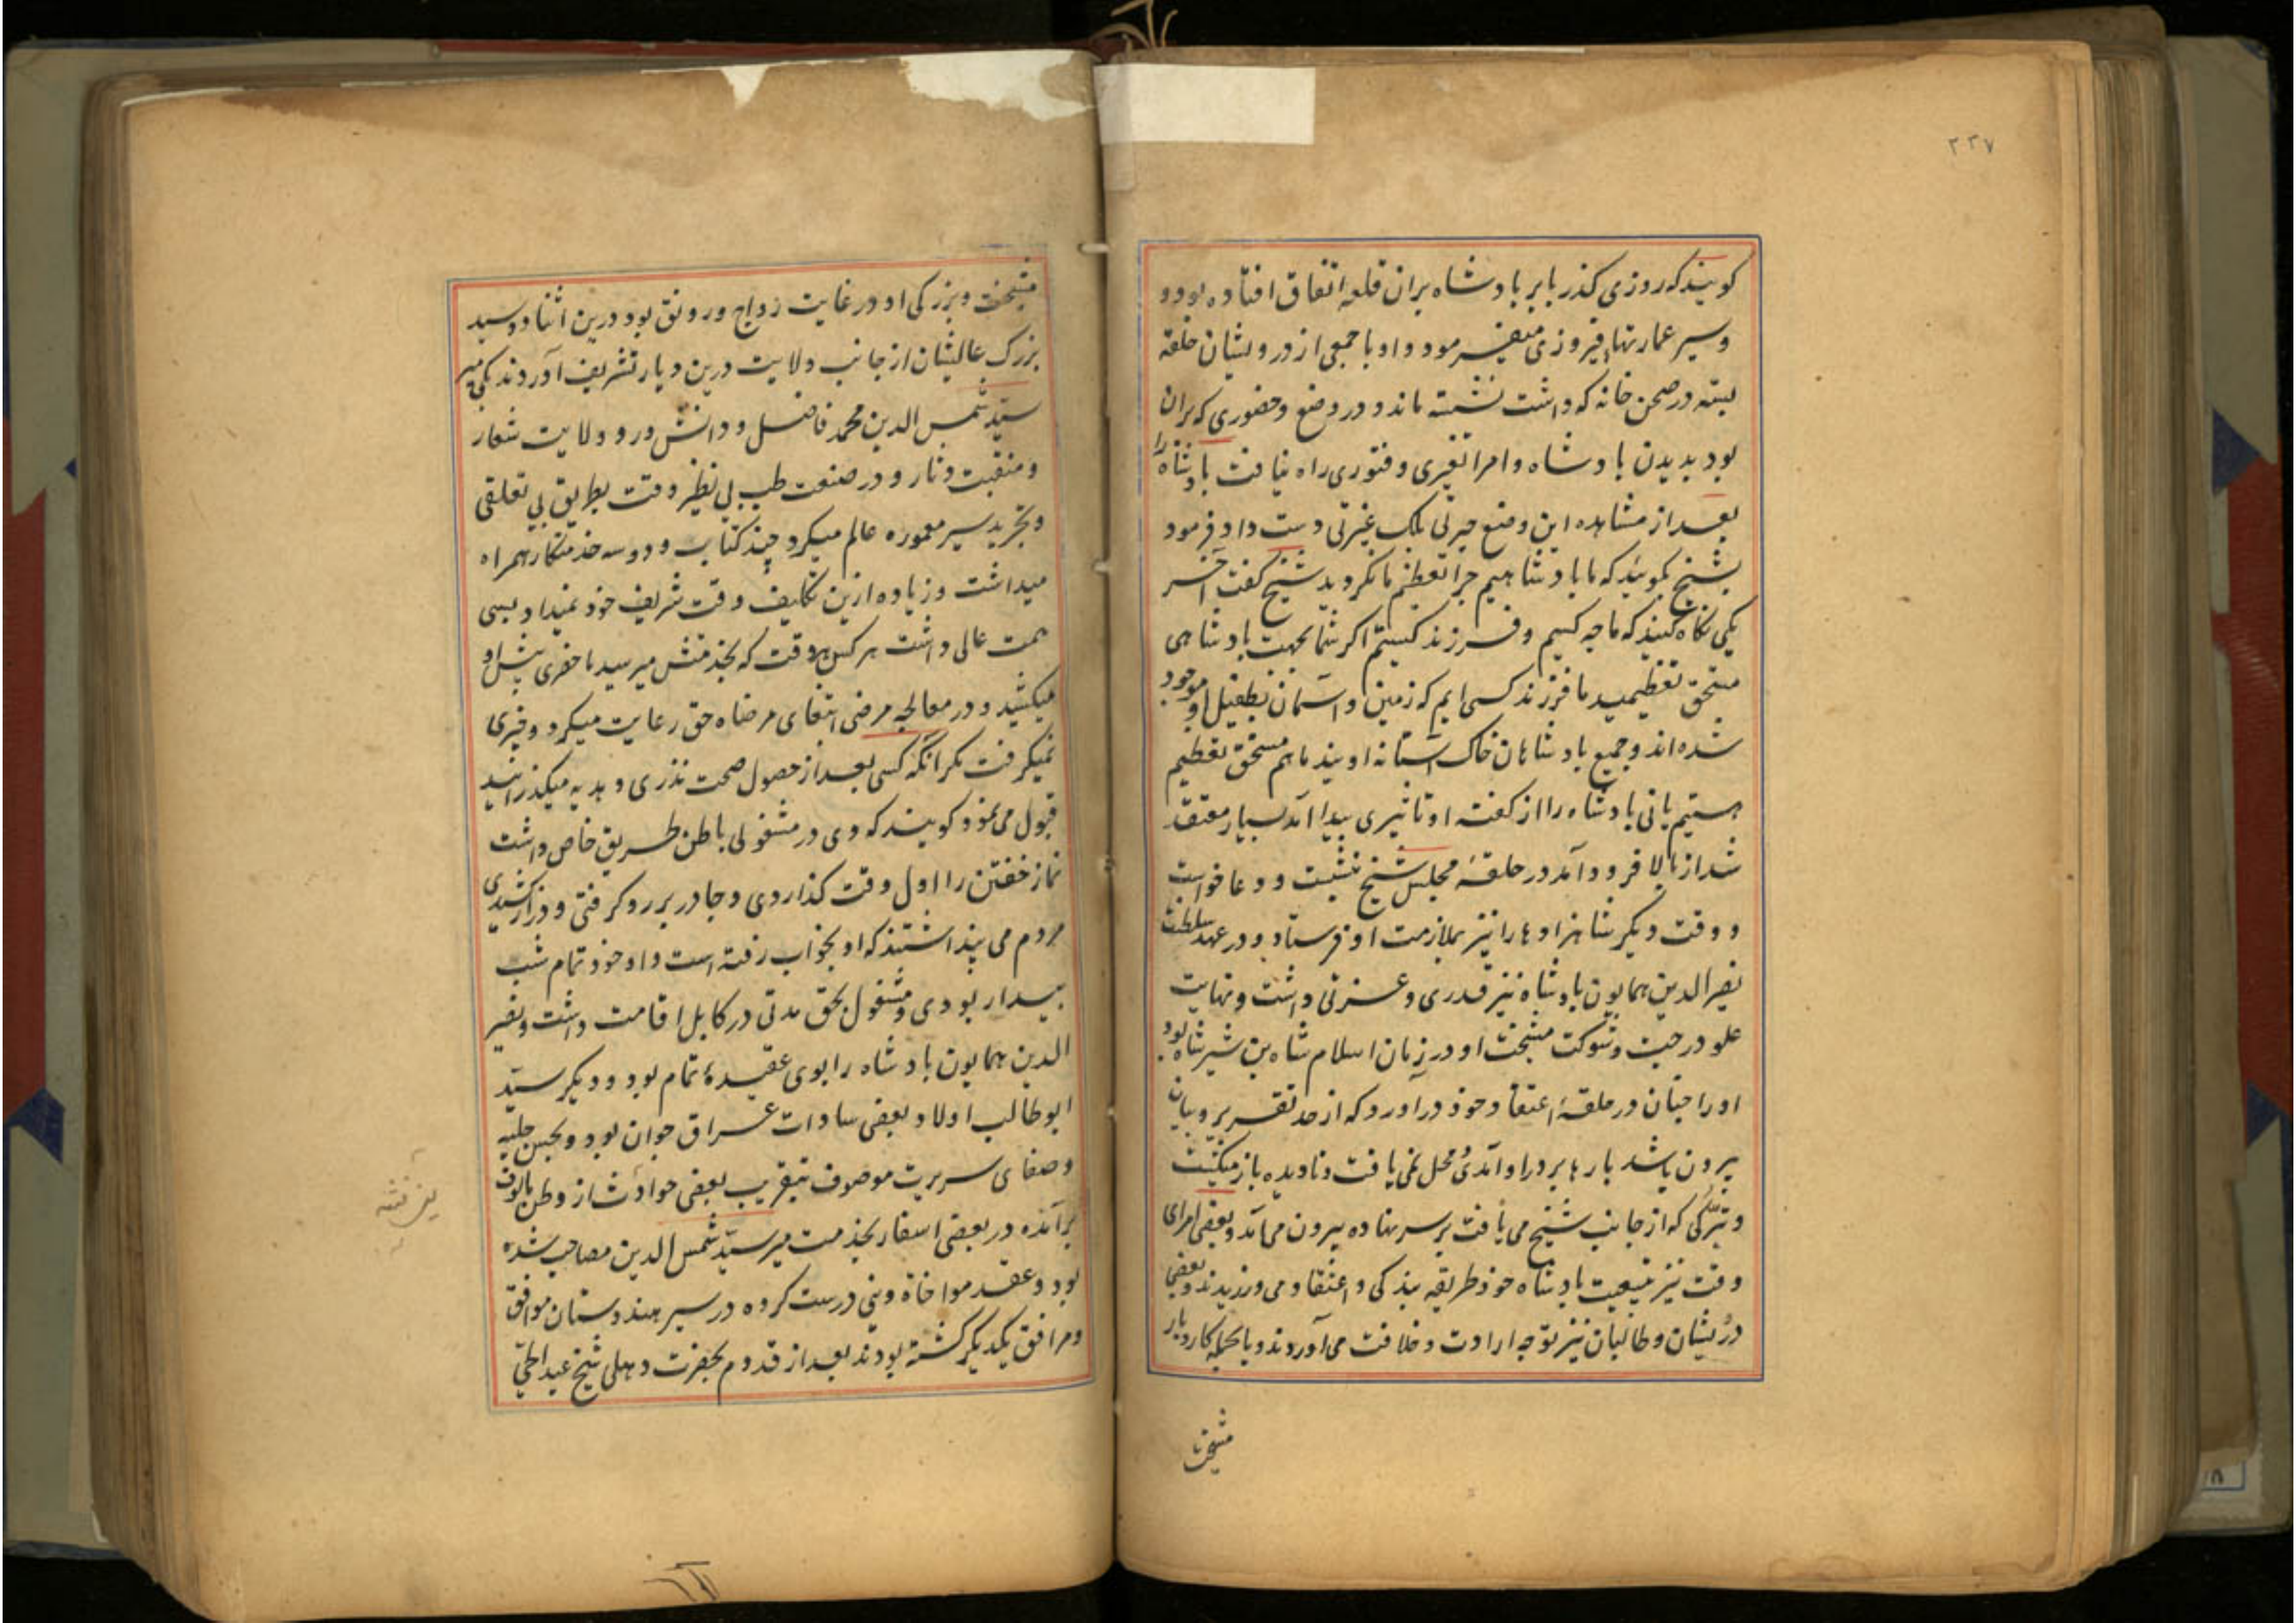 ۲۳۷
کویند که روزی کذر بابر بادشاه بران قلعه اتفاق افتاده بود و
و سیر عمارتهای فیروزی میفرمود و او با جمعی از درویشان حلقه
بسته در صحن خانه که داشت نشسته ماند و در وضع و حضوری که بران
بود بدیدن بادشاه و امرا تغیری و فتوری راه نیافت بادشاه را
بعد از مشاهده این وضع حیرتی بلکه غیرتی دست داد فرمود
بشیخ بکویند که ما بادشاهیم چرا تعظیم ما نکردید شیخ کفت آخر
یکی نکاه کنید که ما چه کسیم و فرزند کیستم اکر شما بجهت بادشاهی
مستحق تعظیمید ما فرزند کسی ایم که زمین و آسمان بطفیل او موجود
شده اند و جمیع بادشاهان خاک آستانه اویند ما هم مستحق تعظیم
هستیم یا نی بادشاه را از کفته او تاثیری پیدا آمد بسیار معتقد
شد از بالا فرود آمد در حلقهٔ مجلس شیخ بنشست و دعا خواست
و وقت دیکر شاهزادها را نیز بملازمت او فرستاد و در عهد سلطنت
نصیر الدین همایون بادشاه نیز قدری و عزتی داشت و نهایت
علو درجیت و شوکت مشیخت او در زمان اسلام شاه بن شیر شاه بود
او را چنان در حلقهٔ اعتقاد خود درآورد که از حد تقریر و بیان
بیرون باشد بارها بر در او آمدی و محل نمی یافت و نادیده باز میکشت
و تبرکی که از جانب شیخ می یافت بر سر نهاده بیرون می‌آمد و بعضی امرای
وقت نیز بتبعیت بادشاه خود طریقه بندکی و اعتقاد می ورزیدند و بعضی
درویشان و طالبان نیز توجه ارادت و خلافت می آوردند و بالجمله کار و بار
مشیخت
مشیخت و بزرکی او در غایت رواج و رونق بود درین اثنا دو سید
بزرک عالیشان از جانب ولایت درین دیار تشریف آوردند یکی میر
سید شمس الدین محمد فاضل و دانشور و ولایت شعار
و منقبت دثار و در صنعت طب بی نظیر وقت بطریق بی تعلقی
و تجرید سیر معموره عالم میکرد چند کتاب و دو سه خدمتکار همراه
میداشت و زیاده ازین تکالیف وقت شریف خود نمیداد بسی
همت عالی داشت هر کس هر وقت که بخدمتش میرسید ماحضری پیش او
میکشید و در معالجه مرضی ابتغای مرضاه حق رعایت میکرد و چیزی
نمیکرفت مکر آنکه کسی بعد از حصول صحت نذری و هدیه میکذرانید
قبول می نمود کویند که وی در مشغولی باطن طریق خاص داشت
نماز خفتن را اول وقت کذاردی و چادر بر رو کرفتی و دراز کشیدی
مردم می پنداشتند که او بخواب رفته است و او خود تمام شب
بیدار بودی و مشغول بحق مدتی در کابل اقامت داشت و نصیر
الدین همایون بادشاه را بوی عقیدهٔ تمام بود و دیکر سید
ابو طالب اولاد بعضی سادات عراق جوان بود و بحسن حلیه
و صفای سریرت موصوف بتقریب بعضی حوادث از وطن مالوف
برآمده در بعضی اسفار بخدمت میر سید شمس الدین مصاحب شده
بود و عقد مواخاة دینی درست کرده در سیر هندوستان موافق
و مرافق یکدیکر کشته بودند بعد از قدوم بحضرت دهلی شیخ عبد الحی